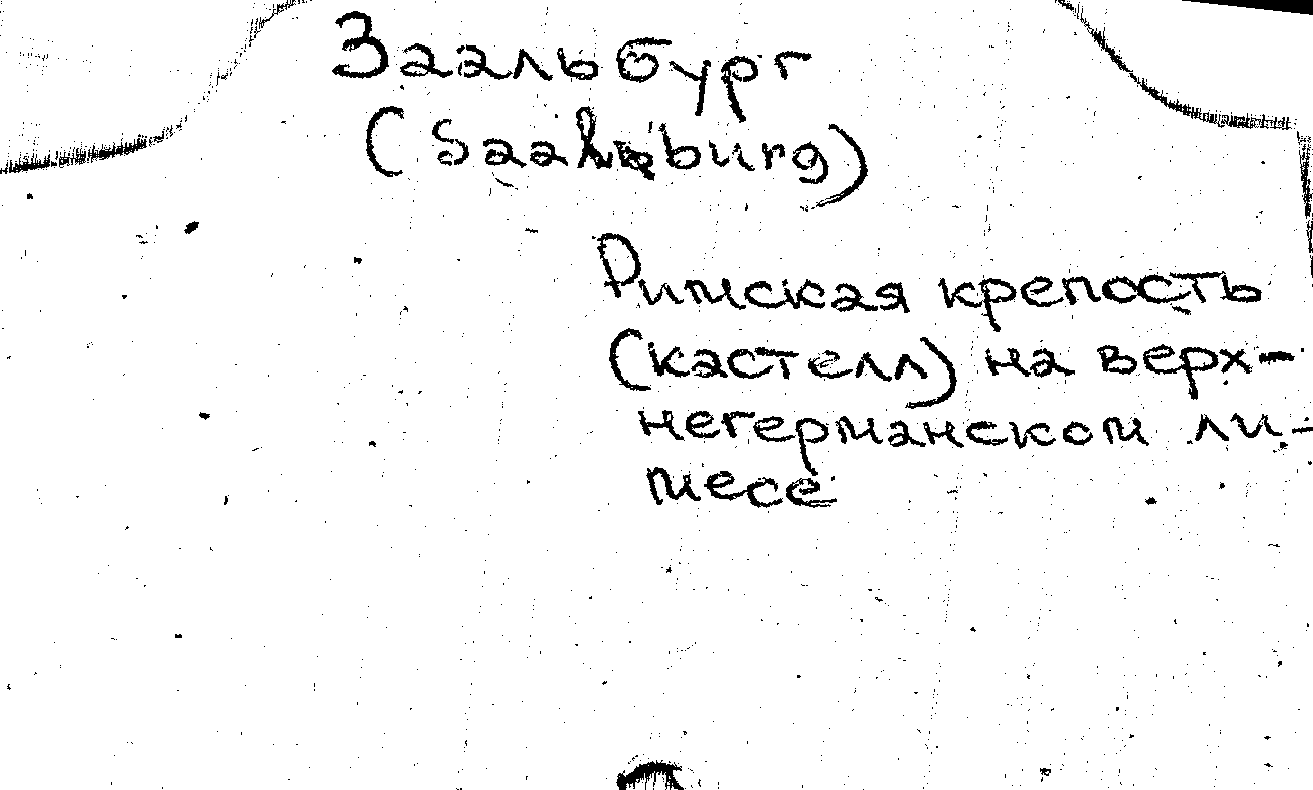 Заальбург
(Saalburg)
Римская крепость
(кастелл) на верх-
негерманском ли-
месе